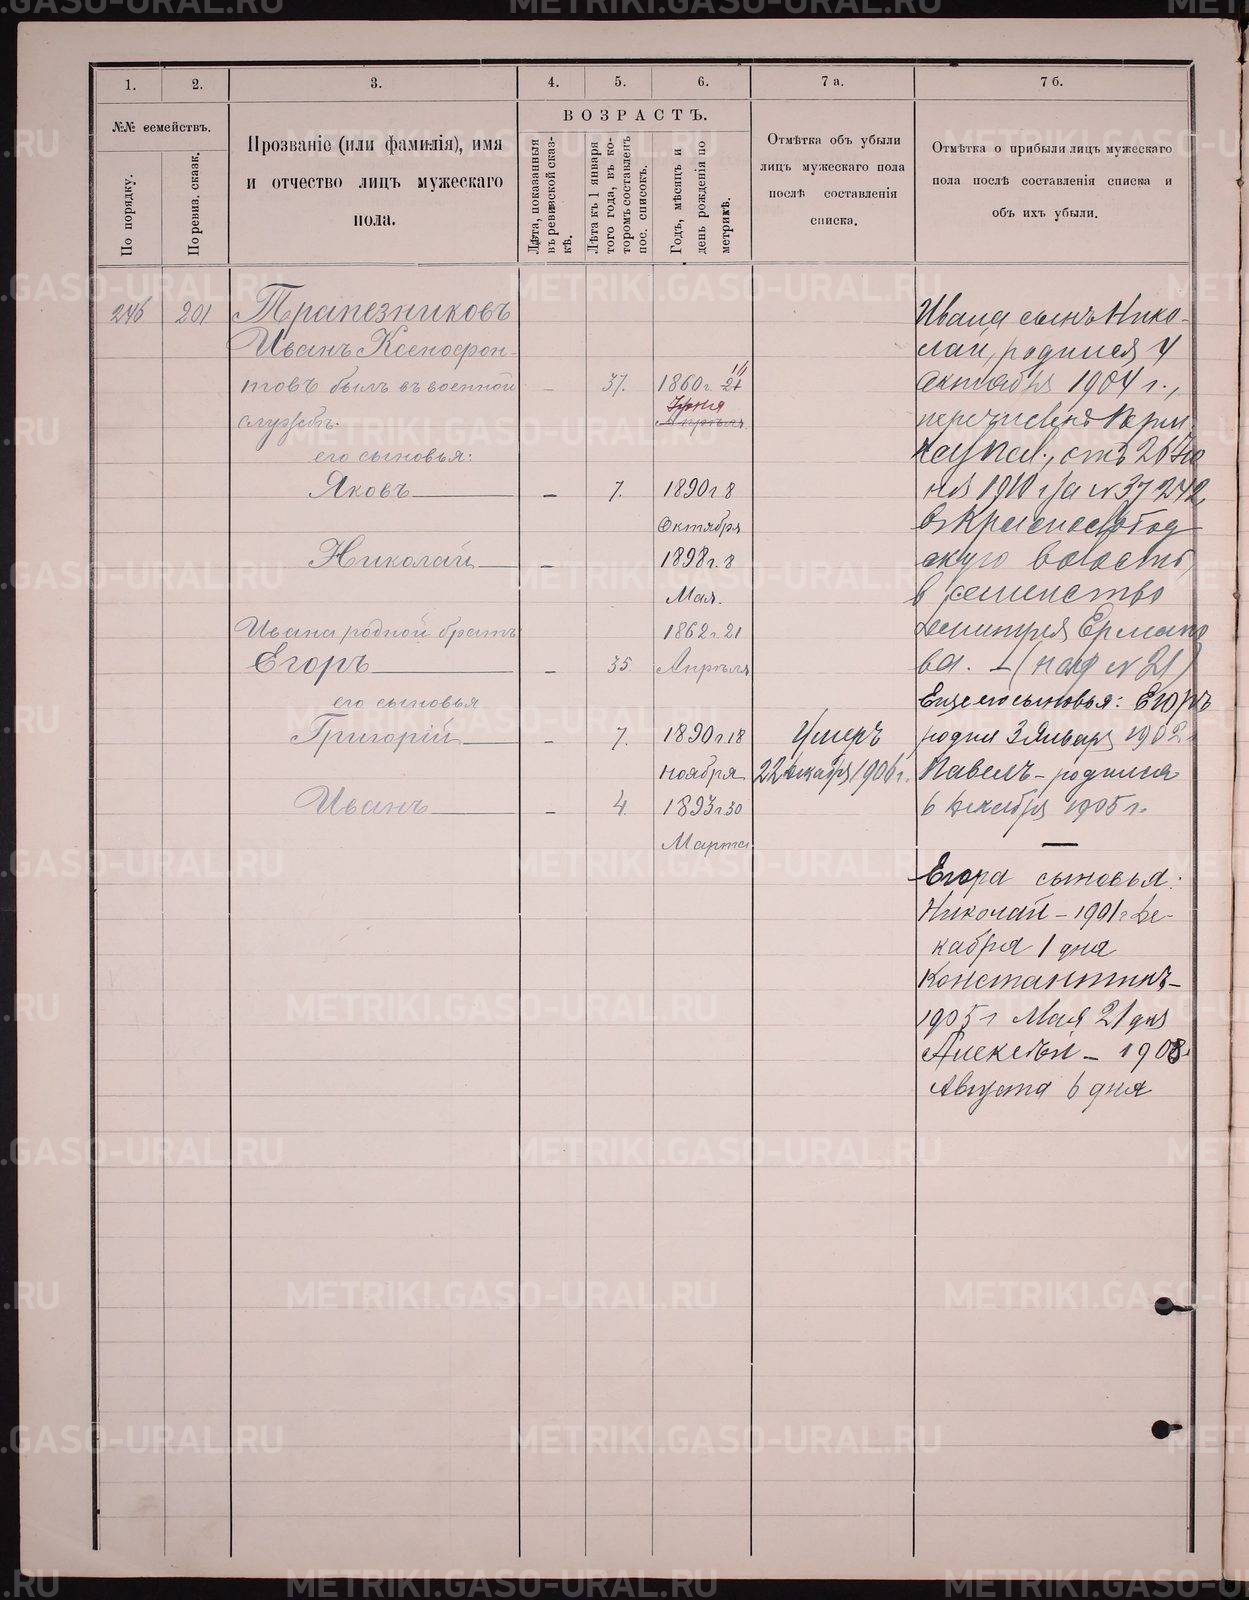 1.
2.
3.
4.
5.
6.
7 а.
7 б.
№№ семействъ.
По порядку.
По ревиз. сказк.
Прозваніе (или фамилія), имя
и отчество лицъ мужескаго
пола.
ВОЗРАСТЪ.
Лѣта, показанныя
въ ревизской сказ-
кѣ.
Лѣта къ 1 января
того года, въ ко-
торомъ составленъ
пос. списокъ.
Годъ, мѣсяцъ и
день рожденія по
метрикѣ.
Отмѣтка объ убыли
лицъ мужескаго пола
послѣ составленія
списка.
Отмѣтка о прибыли лицъ мужескаго
пола послѣ составленія списка и
объ ихъ убыли.
246 201 Трапезниковъ
Иванъ Ксенофон-
товъ былъ въ военной – 37. 1860 г. 21
службѣ. Апрѣля
его сыновья:
Яковъ – 7. 1890 г. 8
Октября
Николай – 1898 г. 8
Мая.
Ивана родной братъ 1862 г. 21
Егоръ – 35. Апрѣля
его сыновья
Григорій – 7. 1890 г. 18
ноября
Иванъ – 4. 1893 г. 30
Марта
Умеръ
22 декабря 1906 г.
Ивана сынъ Нико-
лай, родился 4
октября 1904 г.,
перечисленъ Перм.
Каз. Пал., отъ 26
1910 г. за № 37242
въ
скую волость,
в семейство
Дмитрея Ермако
ва. – (под № 21)
Еще его сыновья: Егоръ
родил 3 Января 1902 г.
Павелъ – родился
6 декабря 1905 г.
Егора сыновья:
Николай – 1901 г. Де-
кабря 1 дня
Константинъ –
1905 г Мая 21 дня
Алексѣй – 1908 г.
Августа 6 дня
METRIKI.GASO-URAL.RU